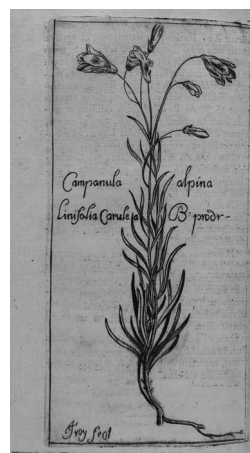 Campanula alpina
linifolia Carulela B. prodr-
Troy fecit